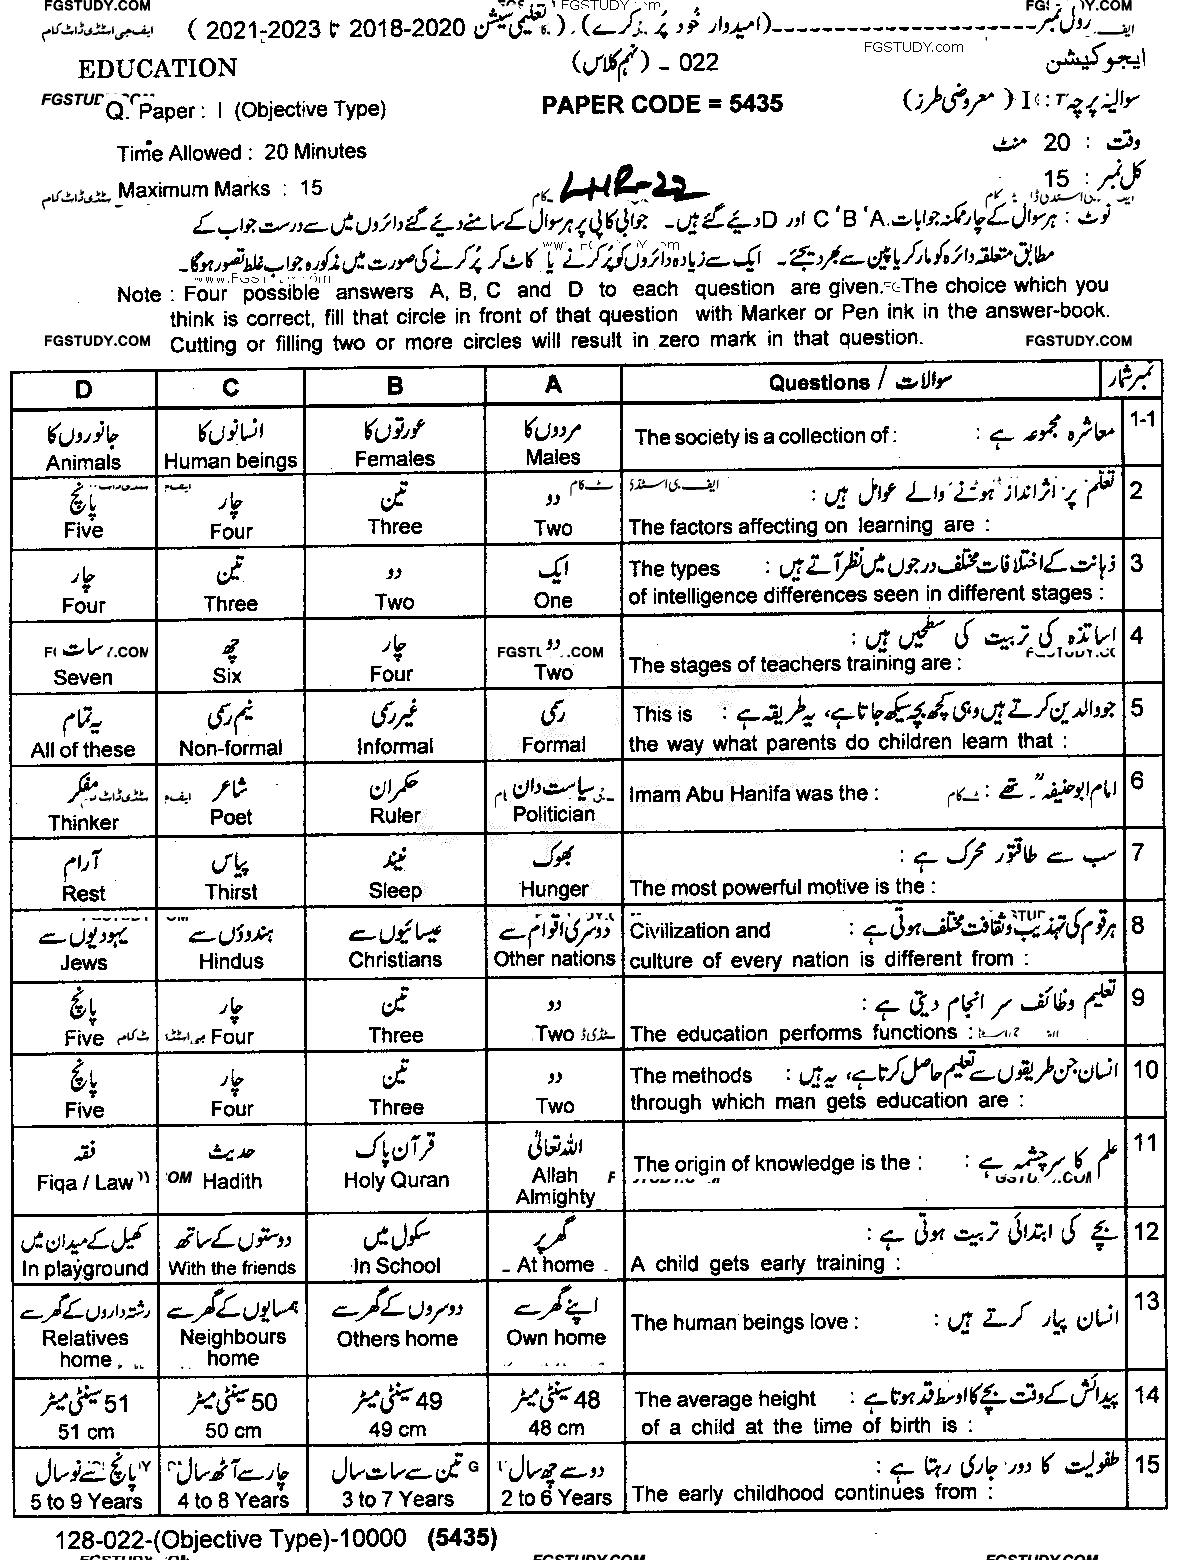 FGSTUDY.COM
رول نمبر (امیدوار خود پُر کرے) (تعلیمی سیشن 2018-2020 تا 2021-2023)
ایف جی اسٹڈی ڈاٹ کام
ایجوکیشن 022 - (نہم کلاس) EDUCATION
FGSTUDY.com
سوالیہ پرچہ : I (معروضی طرز) PAPER CODE = 5435 Q. Paper : I (Objective Type)
وقت : 20 منٹ Time Allowed : 20 Minutes
کل نمبر : 15 LHR-22 Maximum Marks : 15
نوٹ : ہر سوال کے چار ممکنہ جوابات A، B، C اور D دیئے گئے ہیں۔ جوابی کاپی پر ہر سوال کے سامنے دیئے گئے دائروں میں سے درست جواب کے
مطابق متعلقہ دائرہ کو مارکر یا پین سے بھر دیجئے۔ ایک سے زیادہ دائروں کو پُر کرنے یا کاٹ کر پُر کرنے کی صورت میں مذکورہ جواب غلط تصور ہوگا۔
Note : Four possible answers A, B, C and D to each question are given. The choice which you
think is correct, fill that circle in front of that question with Marker or Pen ink in the answer-book.
FGSTUDY.COM Cutting or filling two or more circles will result in zero mark in that question. FGSTUDY.COM
D C B A Questions / سوالات نمبر شمار
جانوروں کا انسانوں کا عورتوں کا مردوں کا معاشرہ مجموعہ ہے : 1-1
Animals Human beings Females Males The society is a collection of :
پانچ چار تین دو تعلّم پر اثر انداز ہونے والے عوامل ہیں : 2
Five Four Three Two The factors affecting on learning are :
چار تین دو ایک ذہانت کے اختلافات مختلف درجوں میں نظر آتے ہیں : The types 3
Four Three Two One of intelligence differences seen in different stages :
سات چھ چار دو اساتذہ کی تربیت کی سطحیں ہیں : 4
Seven Six Four Two The stages of teachers training are :
یہ تمام نیم رسمی غیر رسمی رسمی جو والدین کرتے ہیں وہی کچھ بچہ سیکھ جاتا ہے، یہ طریقہ ہے : This is 5
All of these Non-formal Informal Formal the way what parents do children learn that :
مفکر شاعر حکمران سیاست دان امام ابو حنیفہؒ تھے : Imam Abu Hanifa was the : 6
Thinker Poet Ruler Politician
آرام پیاس نیند بھوک سب سے طاقتور محرک ہے : 7
Rest Thirst Sleep Hunger The most powerful motive is the :
یہودیوں سے ہندوؤں سے عیسائیوں سے دوسری اقوام سے ہر قوم کی تہذیب و ثقافت مختلف ہوتی ہے : Civilization and 8
Jews Hindus Christians Other nations culture of every nation is different from :
پانچ چار تین دو تعلیم وظائف سر انجام دیتی ہے : 9
Five Four Three Two The education performs functions :
پانچ چار تین دو انسان جن طریقوں سے تعلیم حاصل کرتا ہے، یہ ہیں : The methods 10
Five Four Three Two through which man gets education are :
فقہ حدیث قرآن پاک اللہ تعالیٰ علم کا سرچشمہ ہے : The origin of knowledge is the : 11
Fiqa / Law Hadith Holy Quran Allah
Almighty
کھیل کے میدان میں دوستوں کے ساتھ سکول میں گھر پر بچے کی ابتدائی تربیت ہوتی ہے : 12
In playground With the friends In School At home A child gets early training :
رشتہ داروں کے گھر سے ہمسایوں کے گھر سے دوسروں کے گھر سے اپنے گھر سے انسان پیار کرتے ہیں : The human beings love : 13
Relatives Neighbours Others home Own home
home home
51 سینٹی میٹر 50 سینٹی میٹر 49 سینٹی میٹر 48 سینٹی میٹر پیدائش کے وقت بچے کا اوسط قد ہوتا ہے : The average height 14
51 cm 50 cm 49 cm 48 cm of a child at the time of birth is :
پانچ سے نو سال چار سے آٹھ سال تین سے سات سال دو سے چھ سال طفولیت کا دور جاری رہتا ہے : 15
5 to 9 Years 4 to 8 Years 3 to 7 Years 2 to 6 Years The early childhood continues from :
128-022-(Objective Type)-10000 (5435)
FGSTUDY.COM FGSTUDY.COM